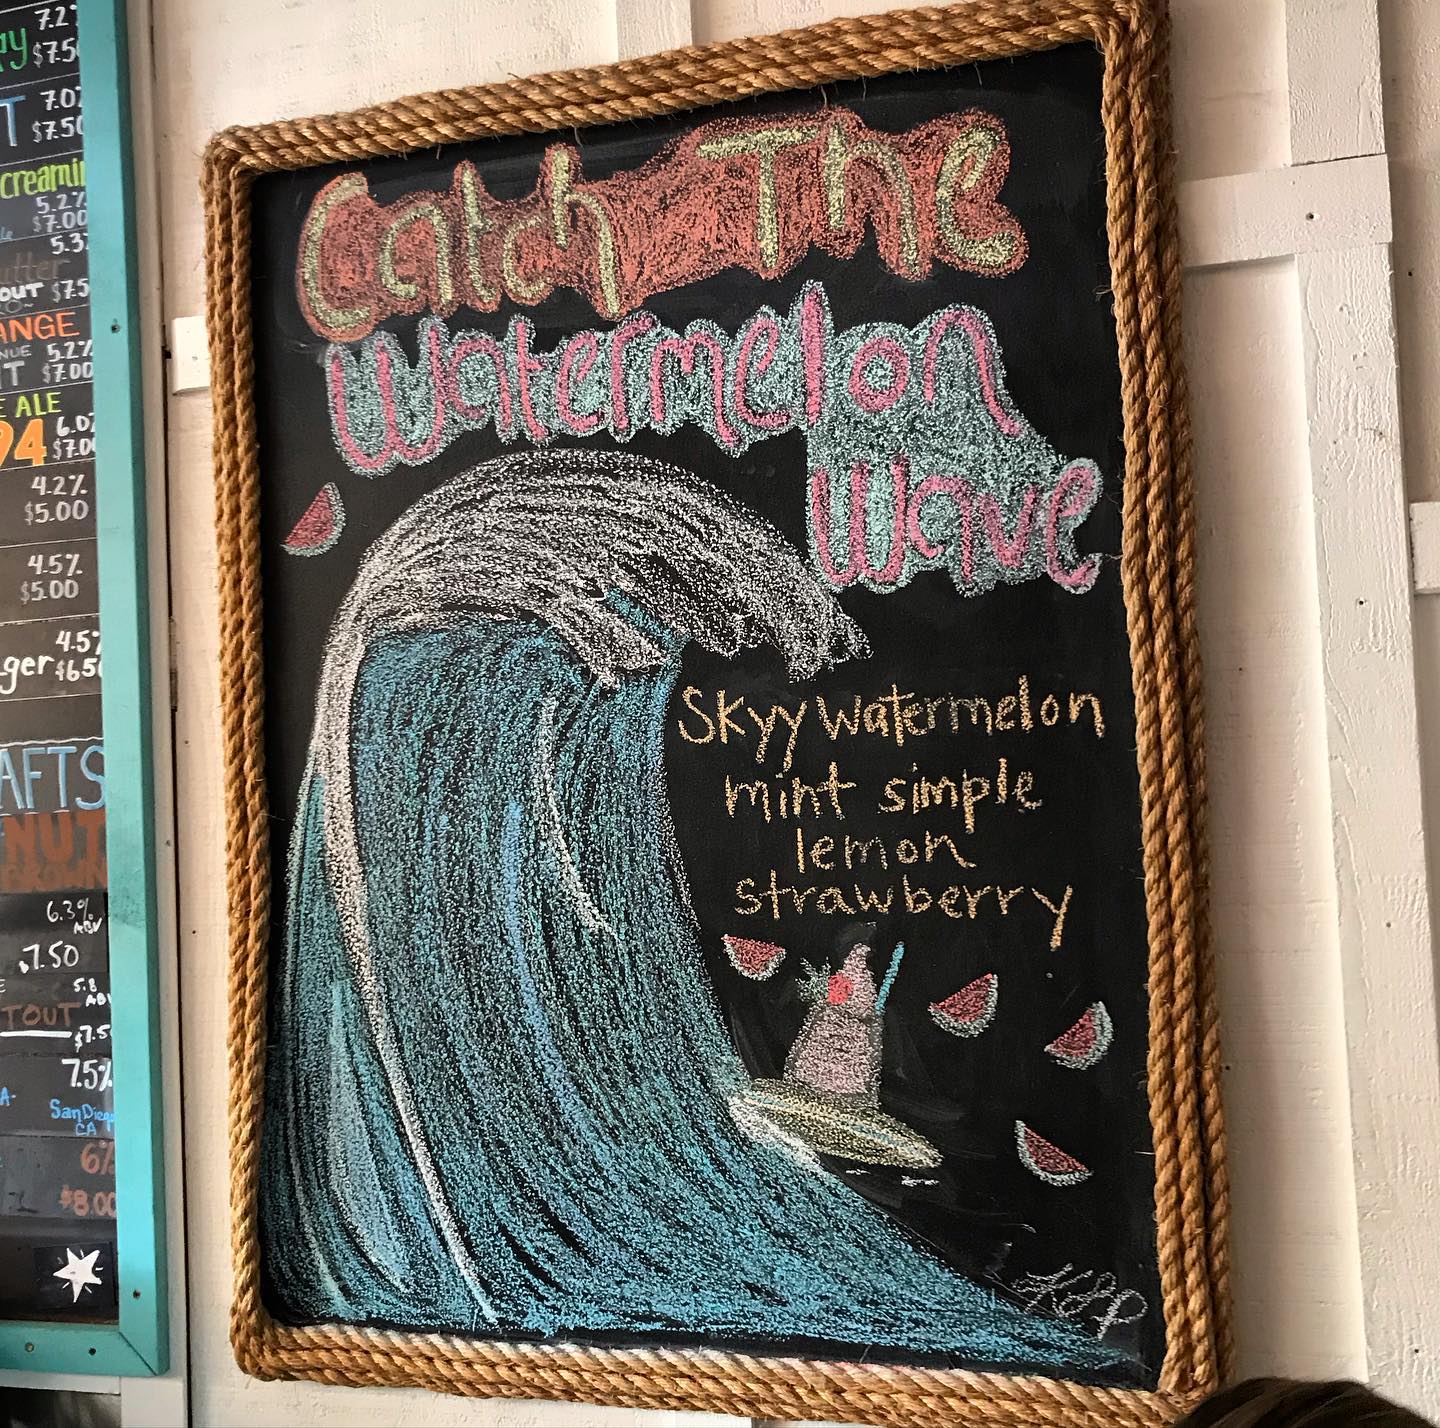 7.2%
ay $7.50
7.0%
T $7.50
creamin
5.2%
$7.00
5.3%
utter
OUT $7.5
ANGE
NUE 5.2%
IT $7.00
E ALE
94 6.0%
$7.00
4.2%
$5.00
4.5%
$5.00
4.5%
ger $6.50
AFTS
NUT
BROWN
6.3%
ABV
7.50
5.8
ABV
TOUT
$7.5
7.5%
A-
San Diego
CA
6%
$8.00
Catch The
Watermelon
Wave
Skyy watermelon
mint simple
lemon
strawberry